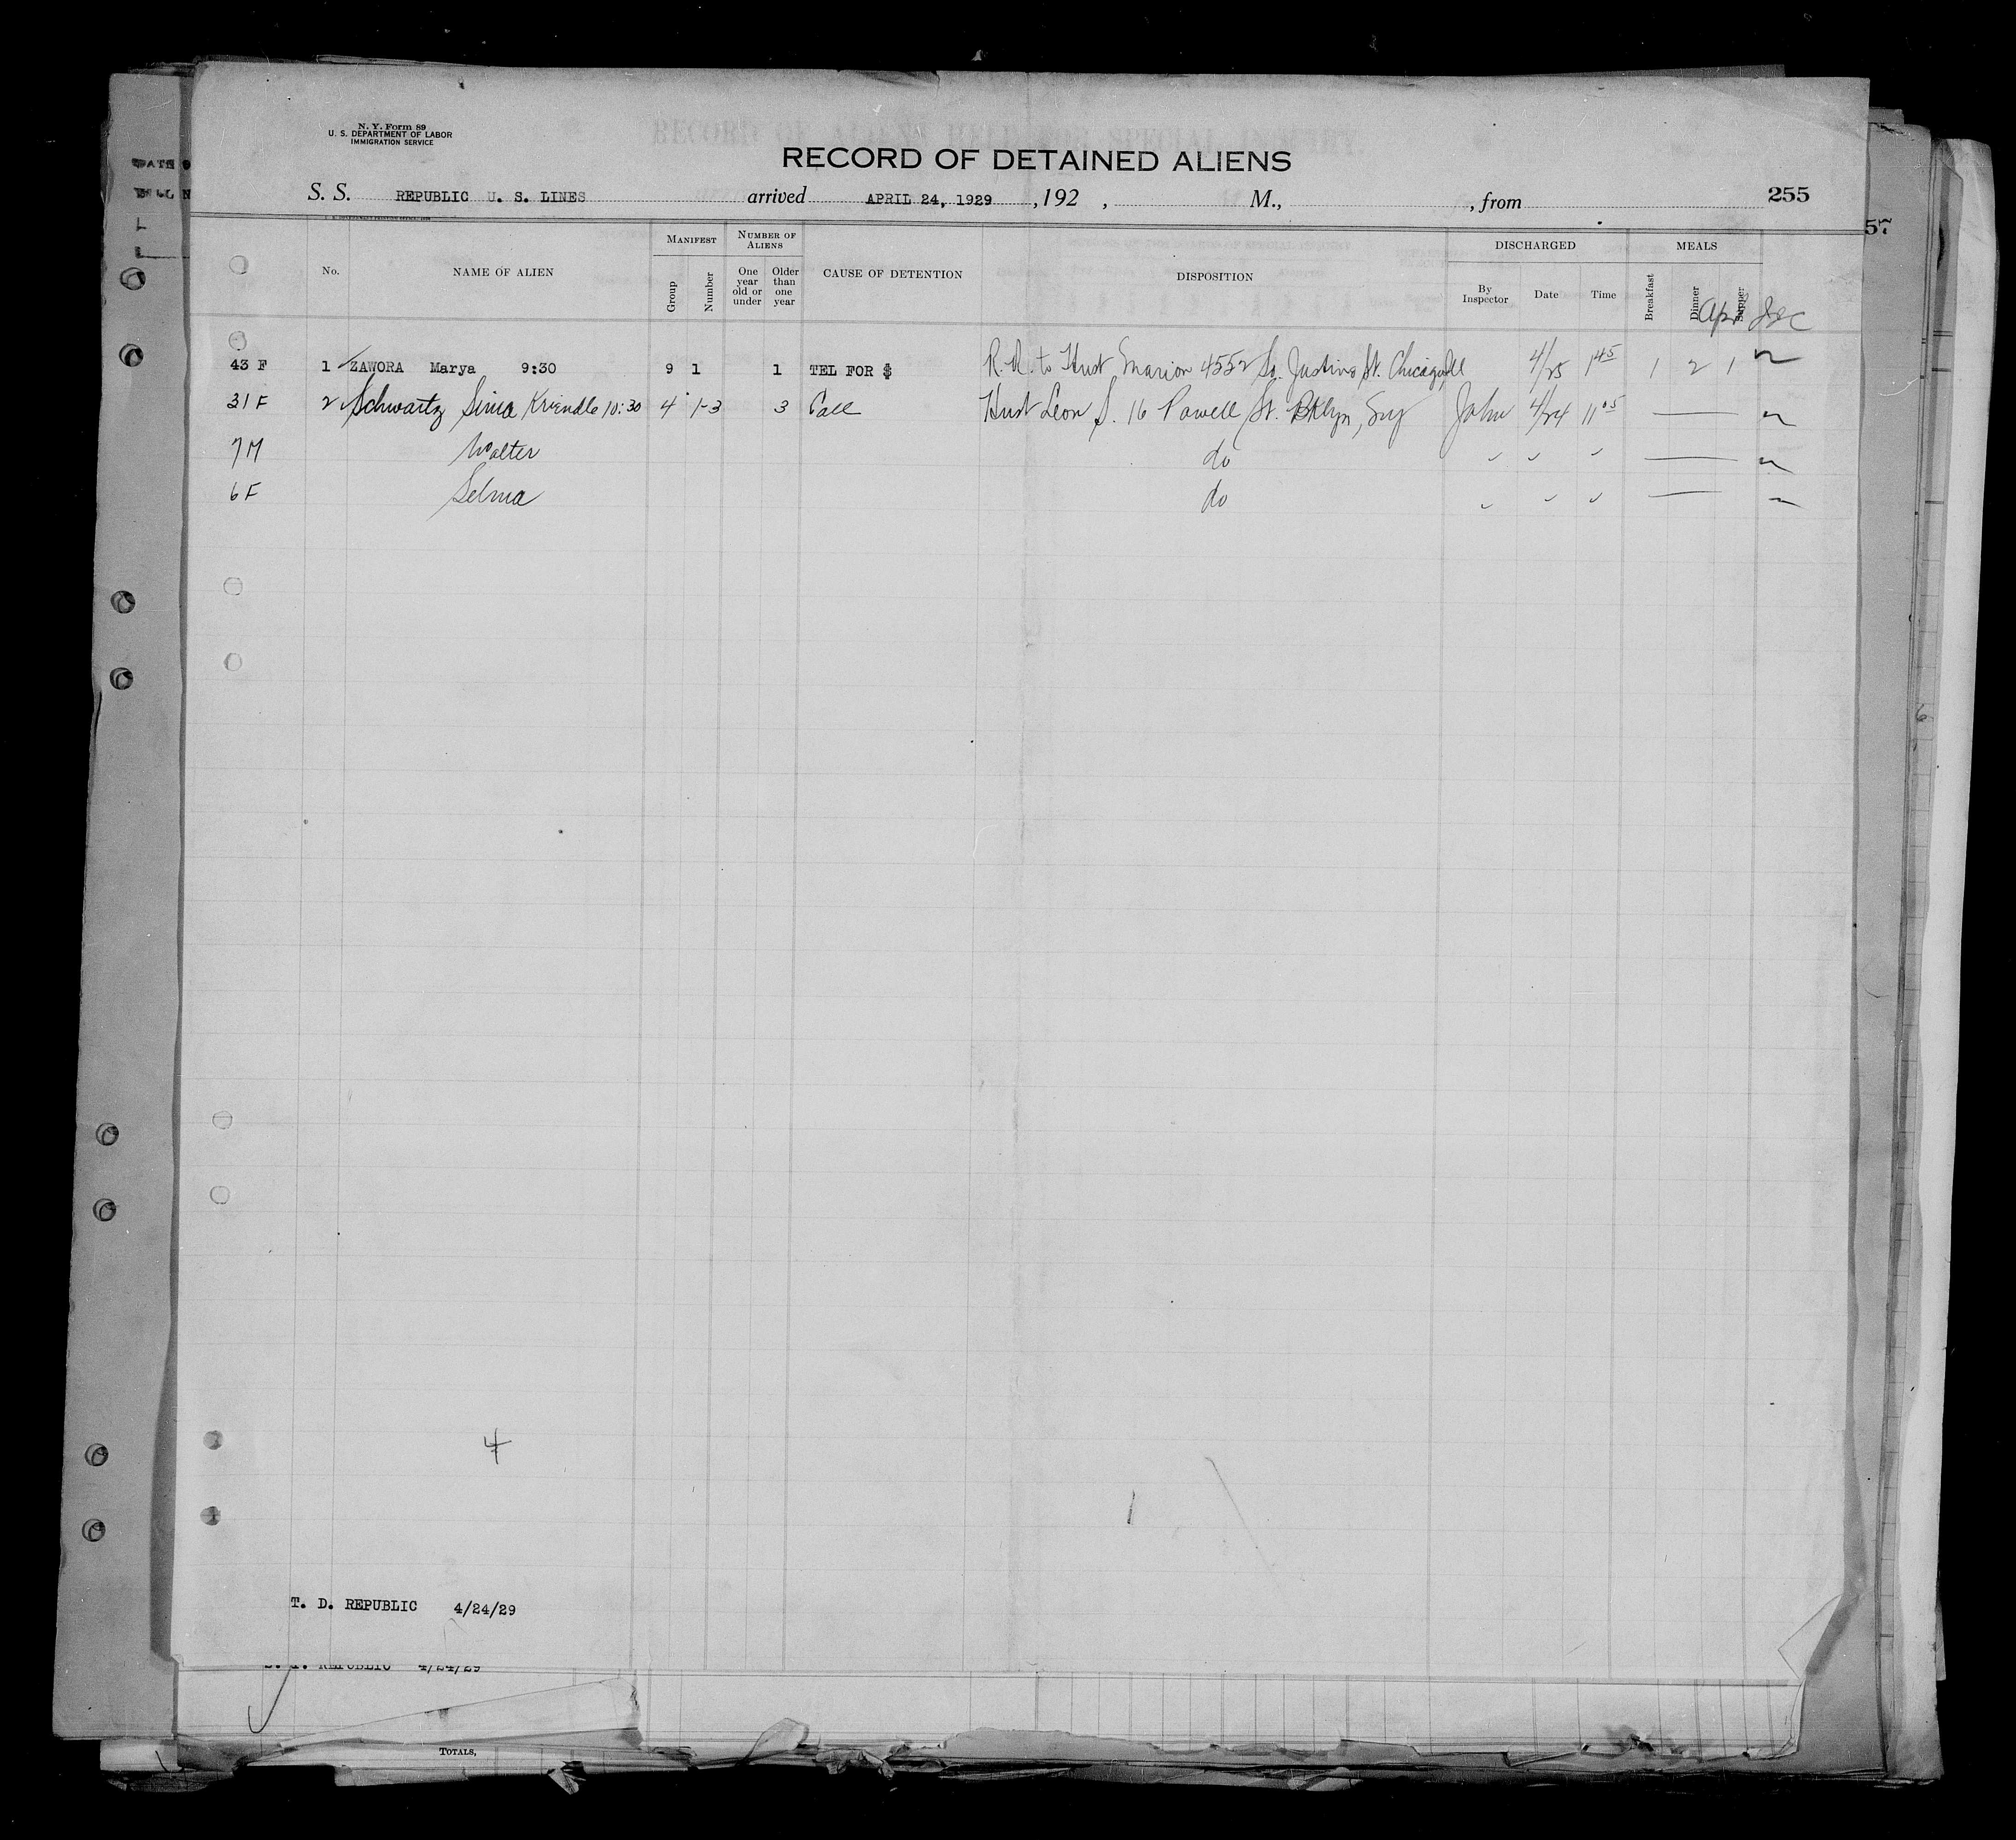 N. Y. Form 89
U. S. DEPARTMENT OF LABOR
IMMIGRATION SERVICE
RECORD OF DETAINED ALIENS
S. S. REPUBLIC U. S. LINES arrived APRIL 24, 1929 , 192 , M., , from 255
57
No. NAME OF ALIEN Manifest Group Number Number of Aliens One year old or under Older than one year CAUSE OF DETENTION DISPOSITION DISCHARGED By Inspector Date Time MEALS Breakfast Dinner Supper
43 F 1 ZAWORA Marya 9:30 9 1 1 TEL FOR $ R.R. to Hust Marion 4552 So. Justine St. Chicago Ill 4/25 1 45 1 2 1
31 F 2 Schwartz Sima Kriendle 10:30 4 1-3 3 Call Hust Leon S. 16 Powell St. Bklyn, Ny John 4/24 11 05
7 M Walter do
6 F Selma do
4
1
T. D. REPUBLIC 4/24/29
REPUBLIC 4/24/29
TOTALS,